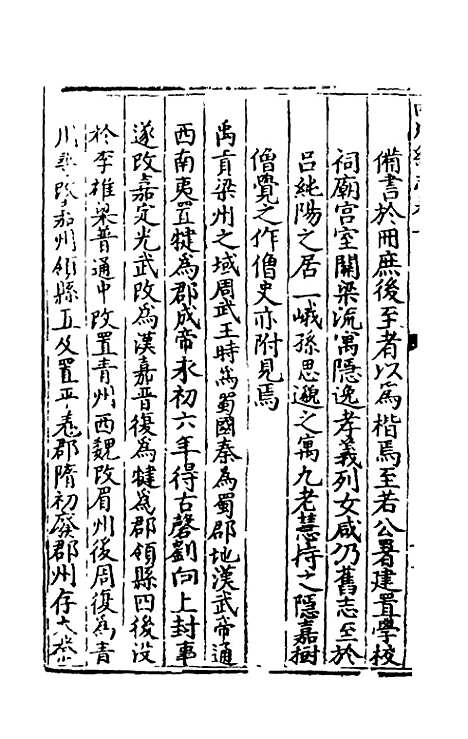 備書於冊庶後至者以為楷焉至若公署建置學校
祠廟宮室關梁流寓隱逸孝義列女咸仍舊志至於
呂純陽之居一峨孫思邈之寓九老慧持之隱嘉樹
僧覺之作僧史亦附見焉
禹貢梁州之域周武王時為蜀國秦為蜀郡地漢武帝通
西南夷置犍為郡成帝永初六年得古磬劉向上封事
遂改嘉定光武改為漢嘉晉復為犍為郡領縣四後没
於李雄梁普通中改置青州西魏改眉州後周復為青
州尋改嘉州領縣五又置平羌郡隋初廢郡州存大